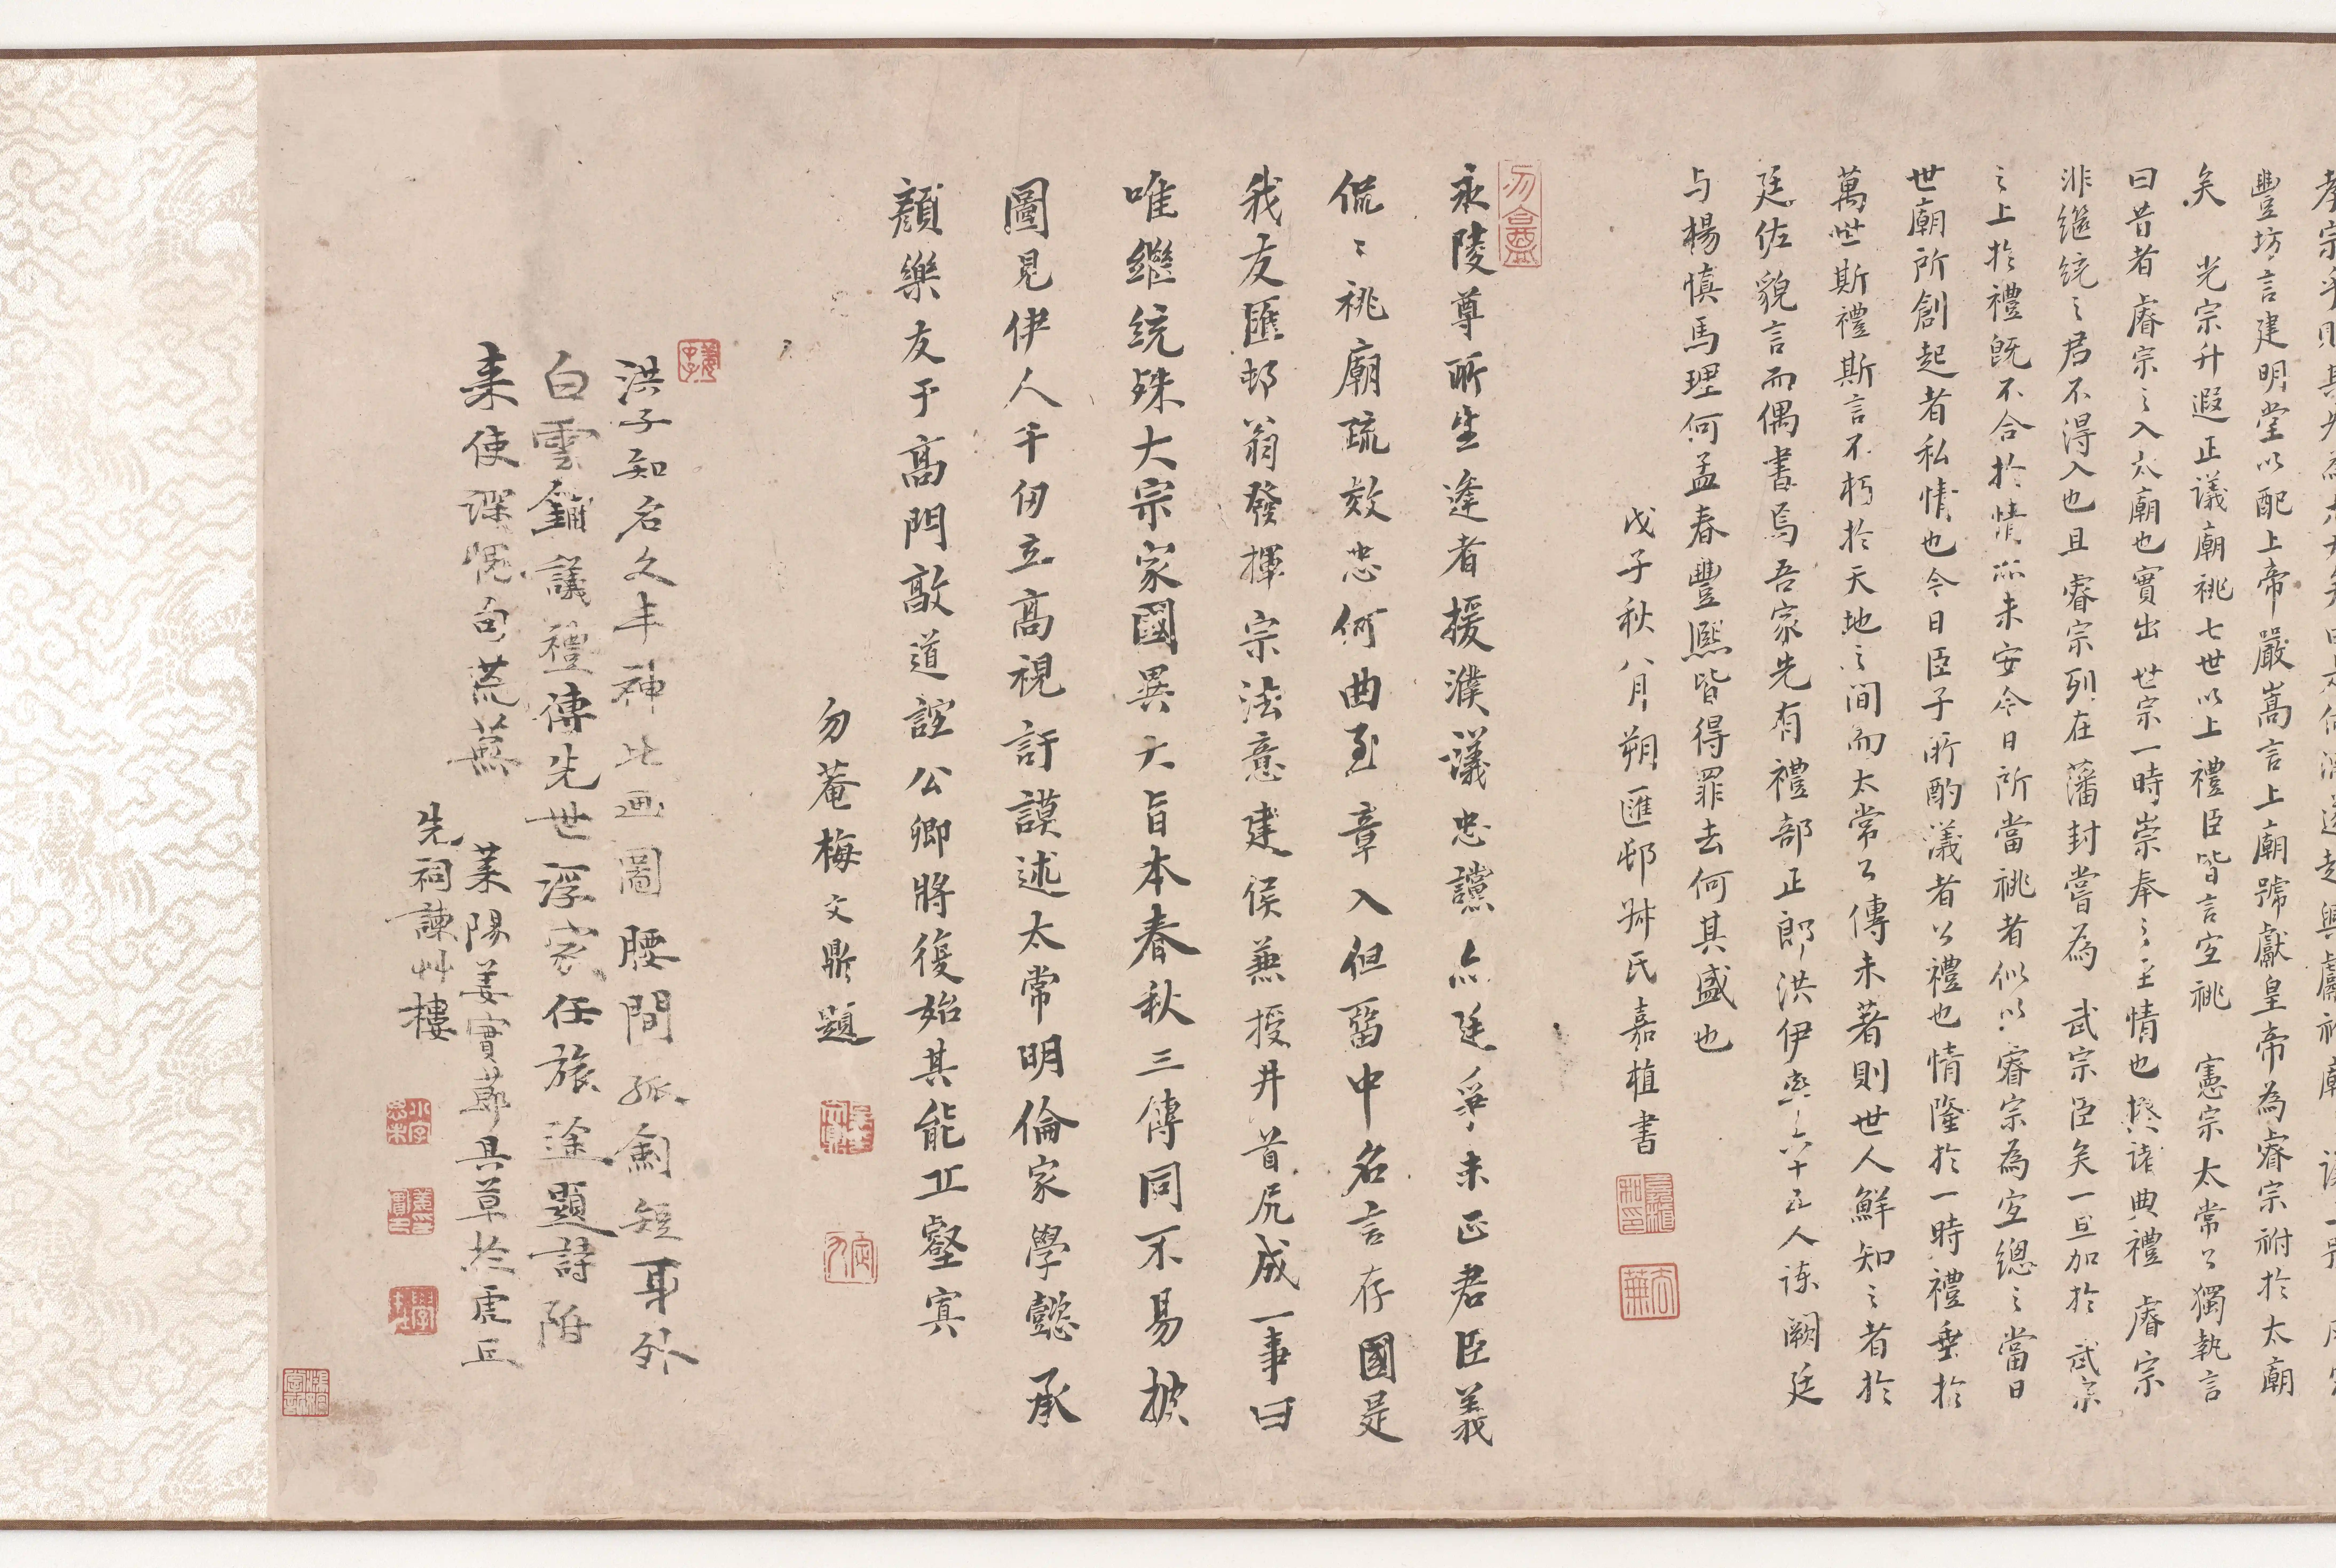 豐坊言建明堂以配上帝嚴嵩言上廟號獻皇帝為睿宗祔於太廟
矣 光宗升遐正議廟祧七世以上禮臣皆言宜祧 憲宗太常公獨執言
曰昔者睿宗之入太廟也實出 世宗一時崇奉之至情也揆諸典禮 睿宗
非繼統之君不得入也且 睿宗列在藩封嘗為 武宗臣矣一旦加於 武宗
之上於禮既不合於情亦未安今日所當祧者似以睿宗為宜總之當日
世廟所創起者私情也今日臣子所酌議者公禮也情隆於一時禮垂於
萬世斯禮斯言不朽於天地之間而太常公傳未著則世人鮮知之者於
廷佐貌言而偶書焉吾家先有禮部正郎洪伊與六十五人諫闕廷
与楊慎馬理何孟春豐熙皆得罪去何其盛也
戊子秋八月朔匯邨姊氏嘉植書
勿合齋
永陵尊所生逢者援濮議忠讜亦廷爭未正君臣義
侃侃祧廟疏效忠何曲至章入但留中名言存國是
我友匯邨翁發揮宗法意建侯兼授井首尻成一事曰
唯繼統殊大宗家國異大旨本春秋三傳同不易披
圖見伊人千仞立高視訏謨述太常明倫家學懿承
顏樂友于高門敞道誼公卿將復始其能正壑寘
勿菴梅文鼎題
洪子知名久丰神比画圖腰間孤劍短耳外
白雲鋪議禮傳先世浮家任旅途題詩陏
来使深愧句荒蕪 莱陽姜實莭具草於虎丘
先祠諫艸樓